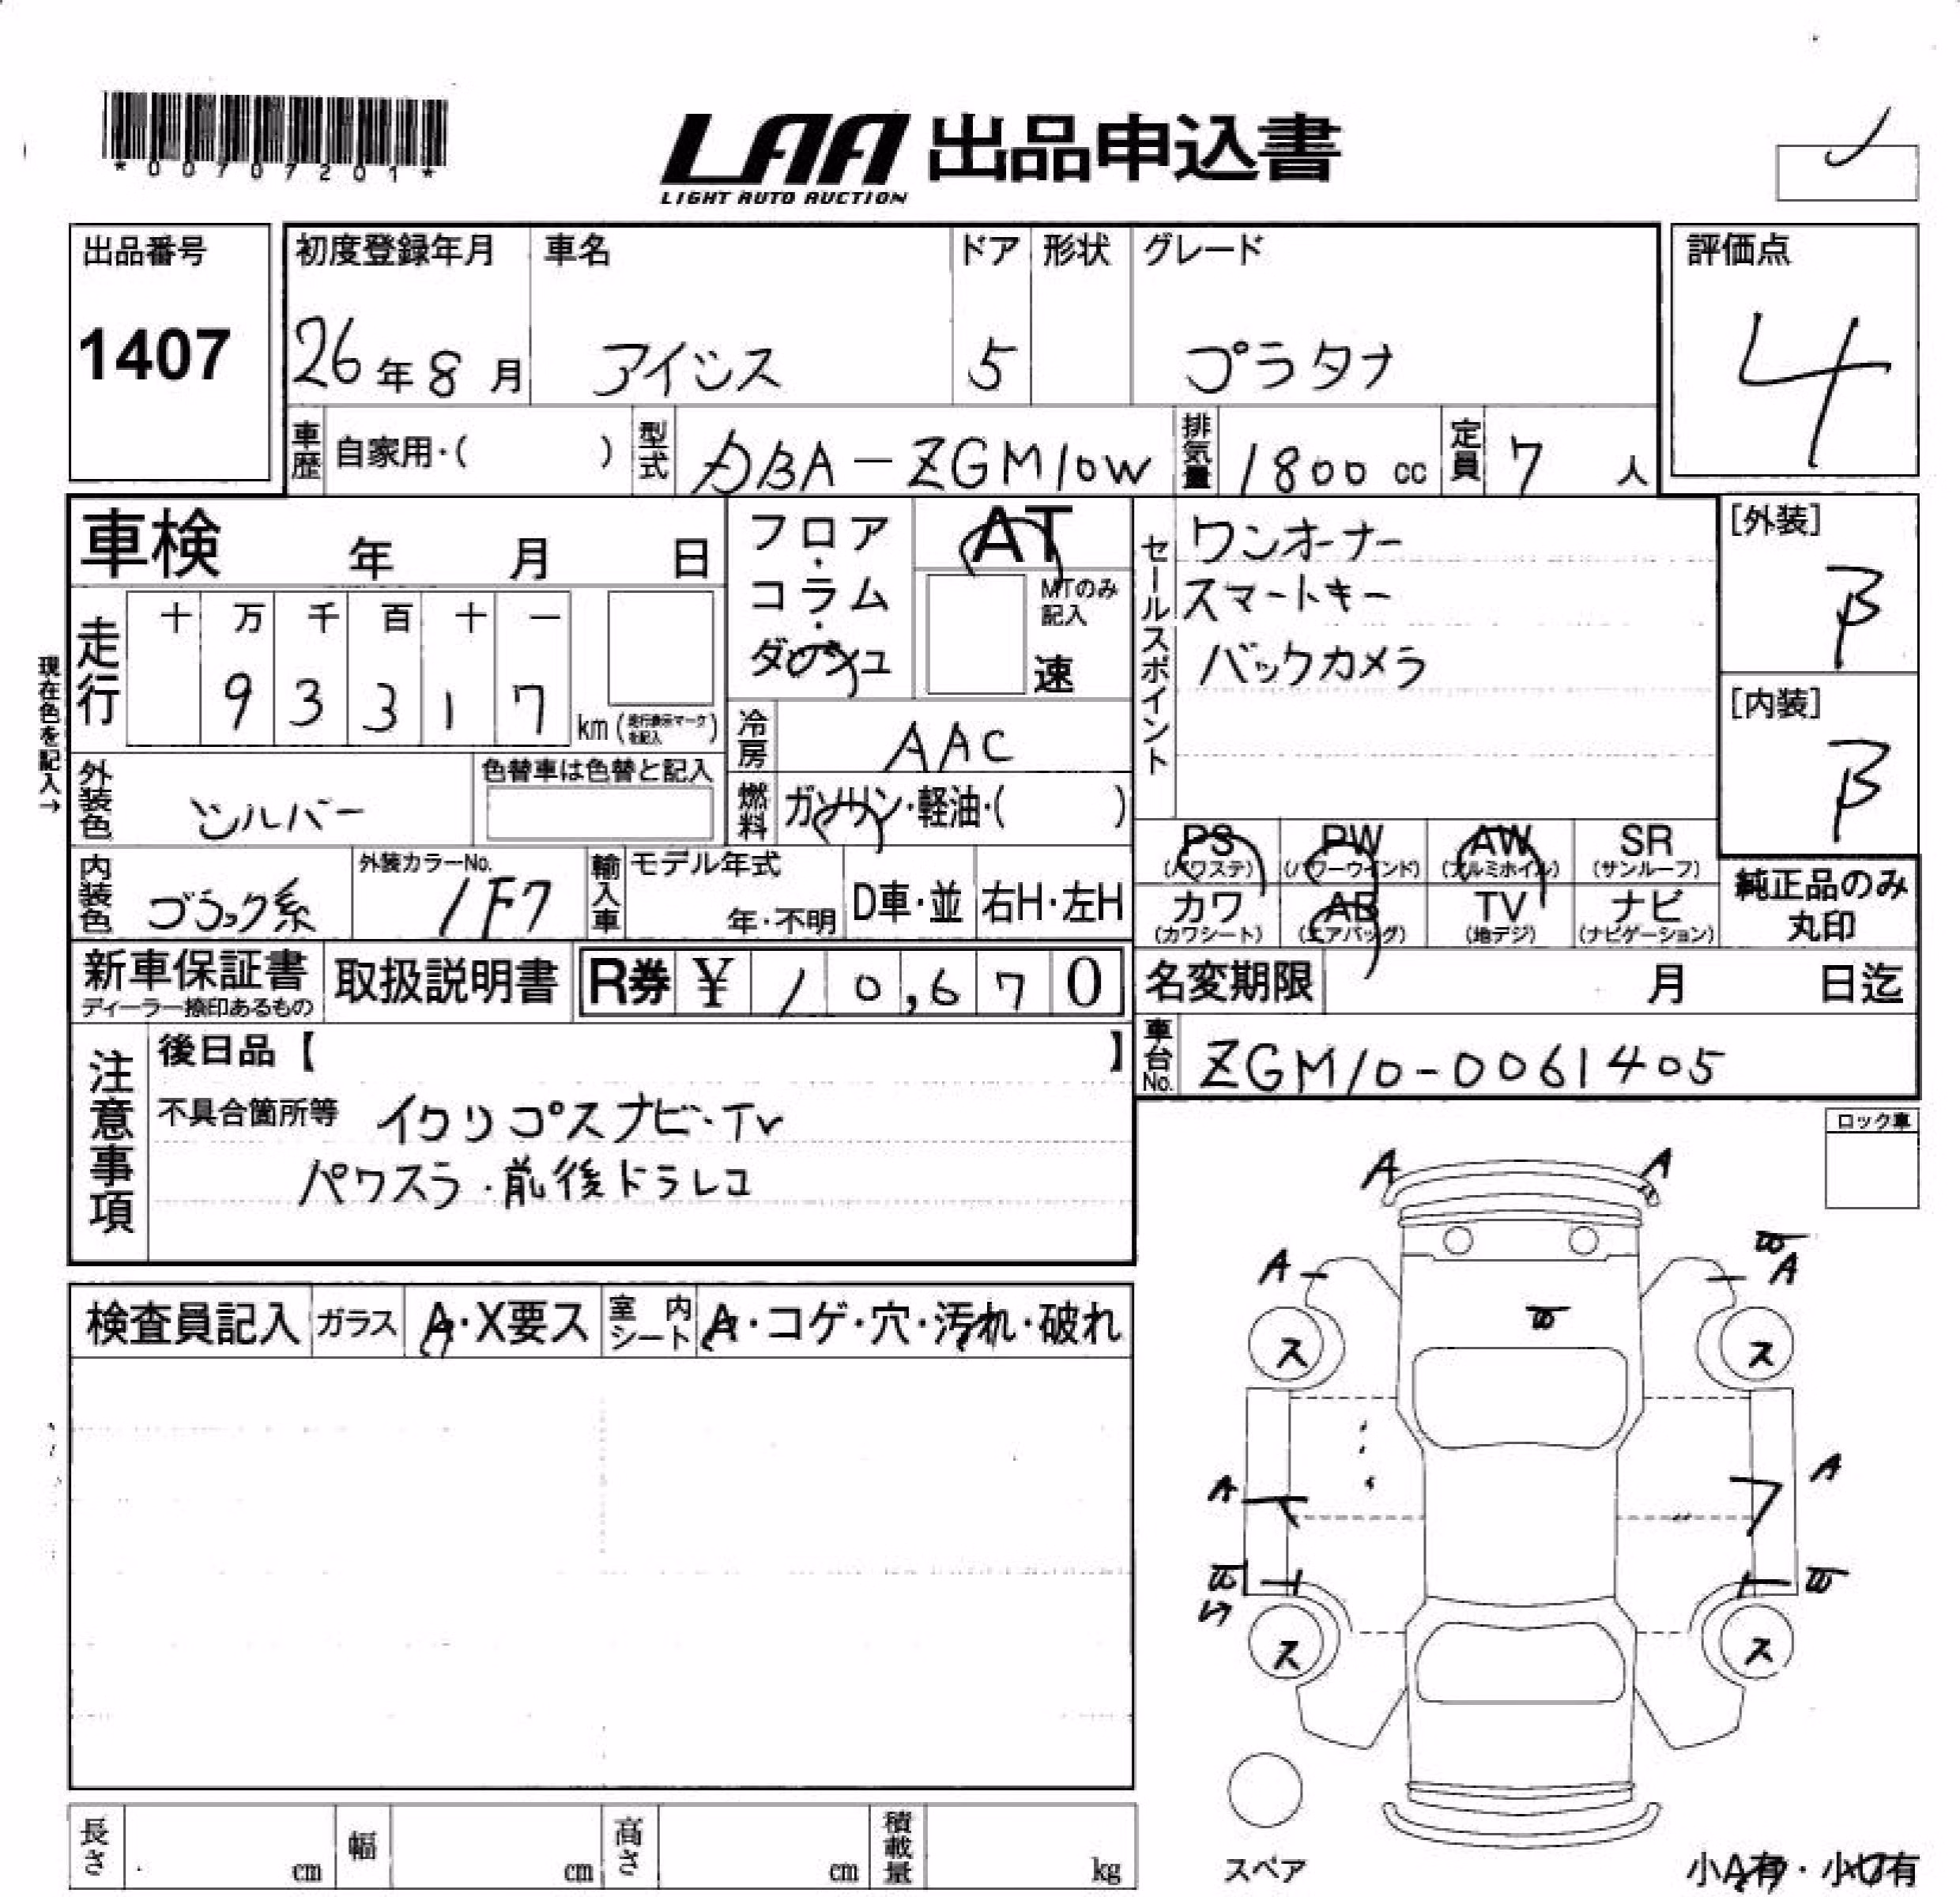 *00707201*
LAA 出品申込書
LIGHT AUTO AUCTION
出品番号
1407
初度登録年月
26年8月
車名
アイシス
ドア
5
形状
グレード
プラタナ
評価点
4
車歴 自家用・( )
型式 DBA-ZGM10W
排気量 1800 cc
定員 7 人
車検 年 月 日
フロア・コラム・ダッシュ
AT
MTのみ記入
速
セールスポイント
ワンオーナー
スマートキー
バックカメラ
[外装]
B
[内装]
B
現在色を記入→
走行
十 万 千 百 十 一
9 3 3 1 7
km (走行表示マークを記入)
冷房 AAC
外装色 シルバー
色替車は色替と記入
燃料 ガソリン・軽油・( )
PS (パワステ)
PW (パワーウインド)
AW (アルミホイル)
SR (サンルーフ)
カワ (カワシート)
AB (エアバッグ)
TV (地デジ)
ナビ (ナビゲーション)
純正品のみ丸印
内装色 ブラック系
外装カラーNo.
1F7
輸入車 モデル年式
年・不明
D車・並
右H・左H
新車保証書
ディーラー捺印あるもの
取扱説明書
R券 ¥ 10,670
名変期限 月 日迄
車台No. ZGM10-0061405
注意事項
後日品【 】
不具合箇所等 イクリプスナビ・TV
パワスラ・前後ドラレコ
ロック車
検査員記入
ガラス A・X要ス
室内シート A・コゲ・穴・汚れ・破れ
A A
A A
ス ス
A A
ス ス
スペア
長さ cm
幅 cm
高さ cm
積載量 kg
小A有・小U有